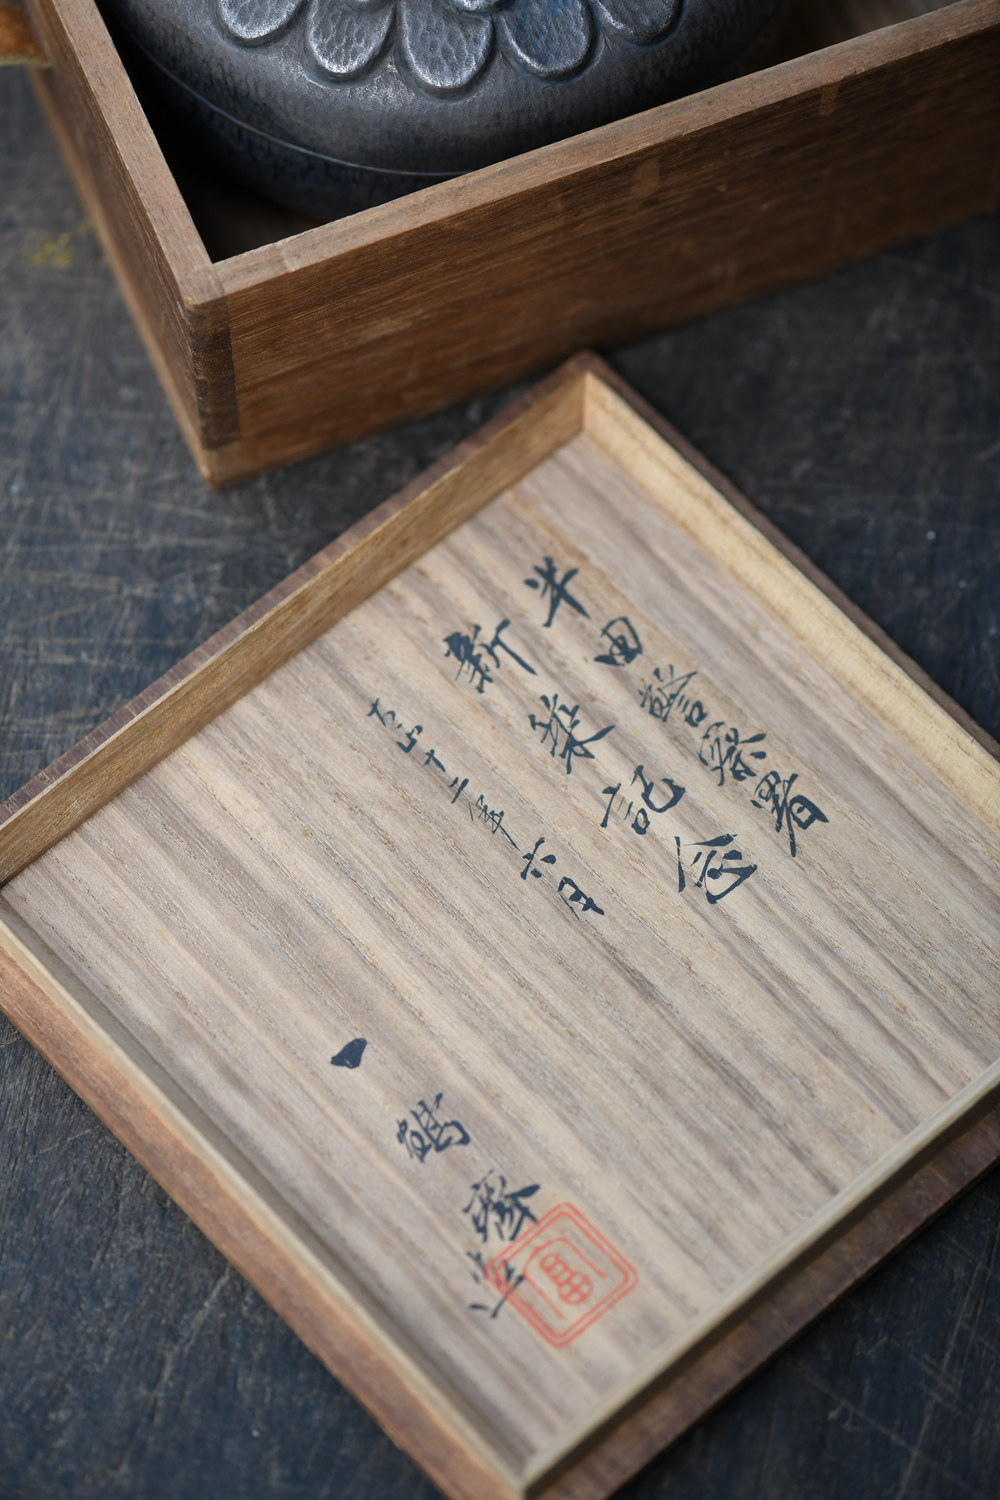 半田警察署
新築記念
大正十二年六月
一鶴齋造